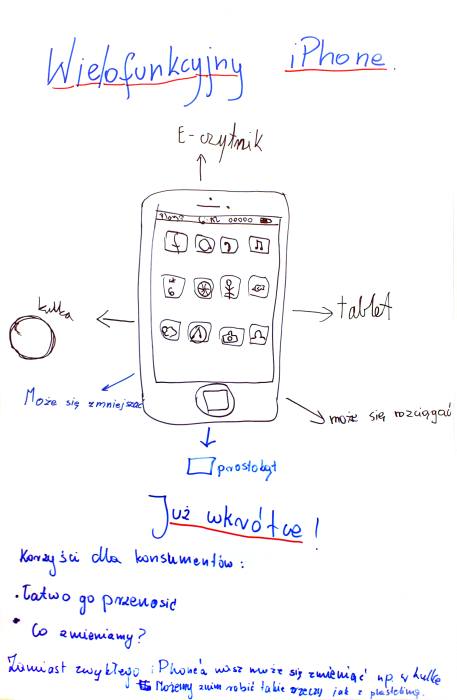 Wielofunkcyjny iPhone.
E-czytnik
kulka
tablet
Może się zmniejszać
może się rozciągać
prostokąt
Już wkrótce!
Korzyści dla konsumentów:
• Łatwo go przenosić
• Co zmieniamy?
Zamiast zwykłego iPhone'a nasz może się zmieniać np. w kulkę
Możemy z nim robić takie rzeczy jak z plasteliną.